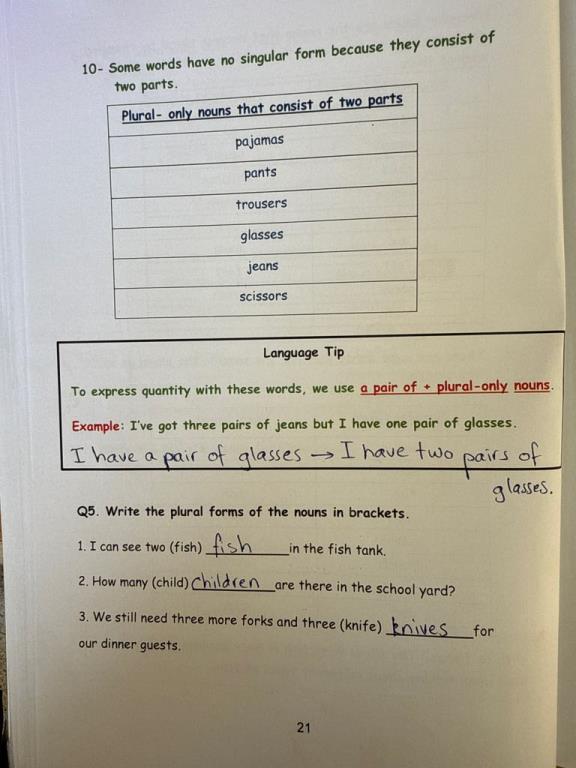 10- Some words have no singular form because they consist of
two parts.
Plural- only nouns that consist of two parts
pajamas
pants
trousers
glasses
jeans
scissors
Language Tip
To express quantity with these words, we use a pair of + plural-only nouns.
Example: I've got three pairs of jeans but I have one pair of glasses.
I have a pair of glasses → I have two pairs of
glasses.
Q5. Write the plural forms of the nouns in brackets.
1. I can see two (fish) fish in the fish tank.
2. How many (child) children are there in the school yard?
3. We still need three more forks and three (knife) knives for
our dinner guests.
21